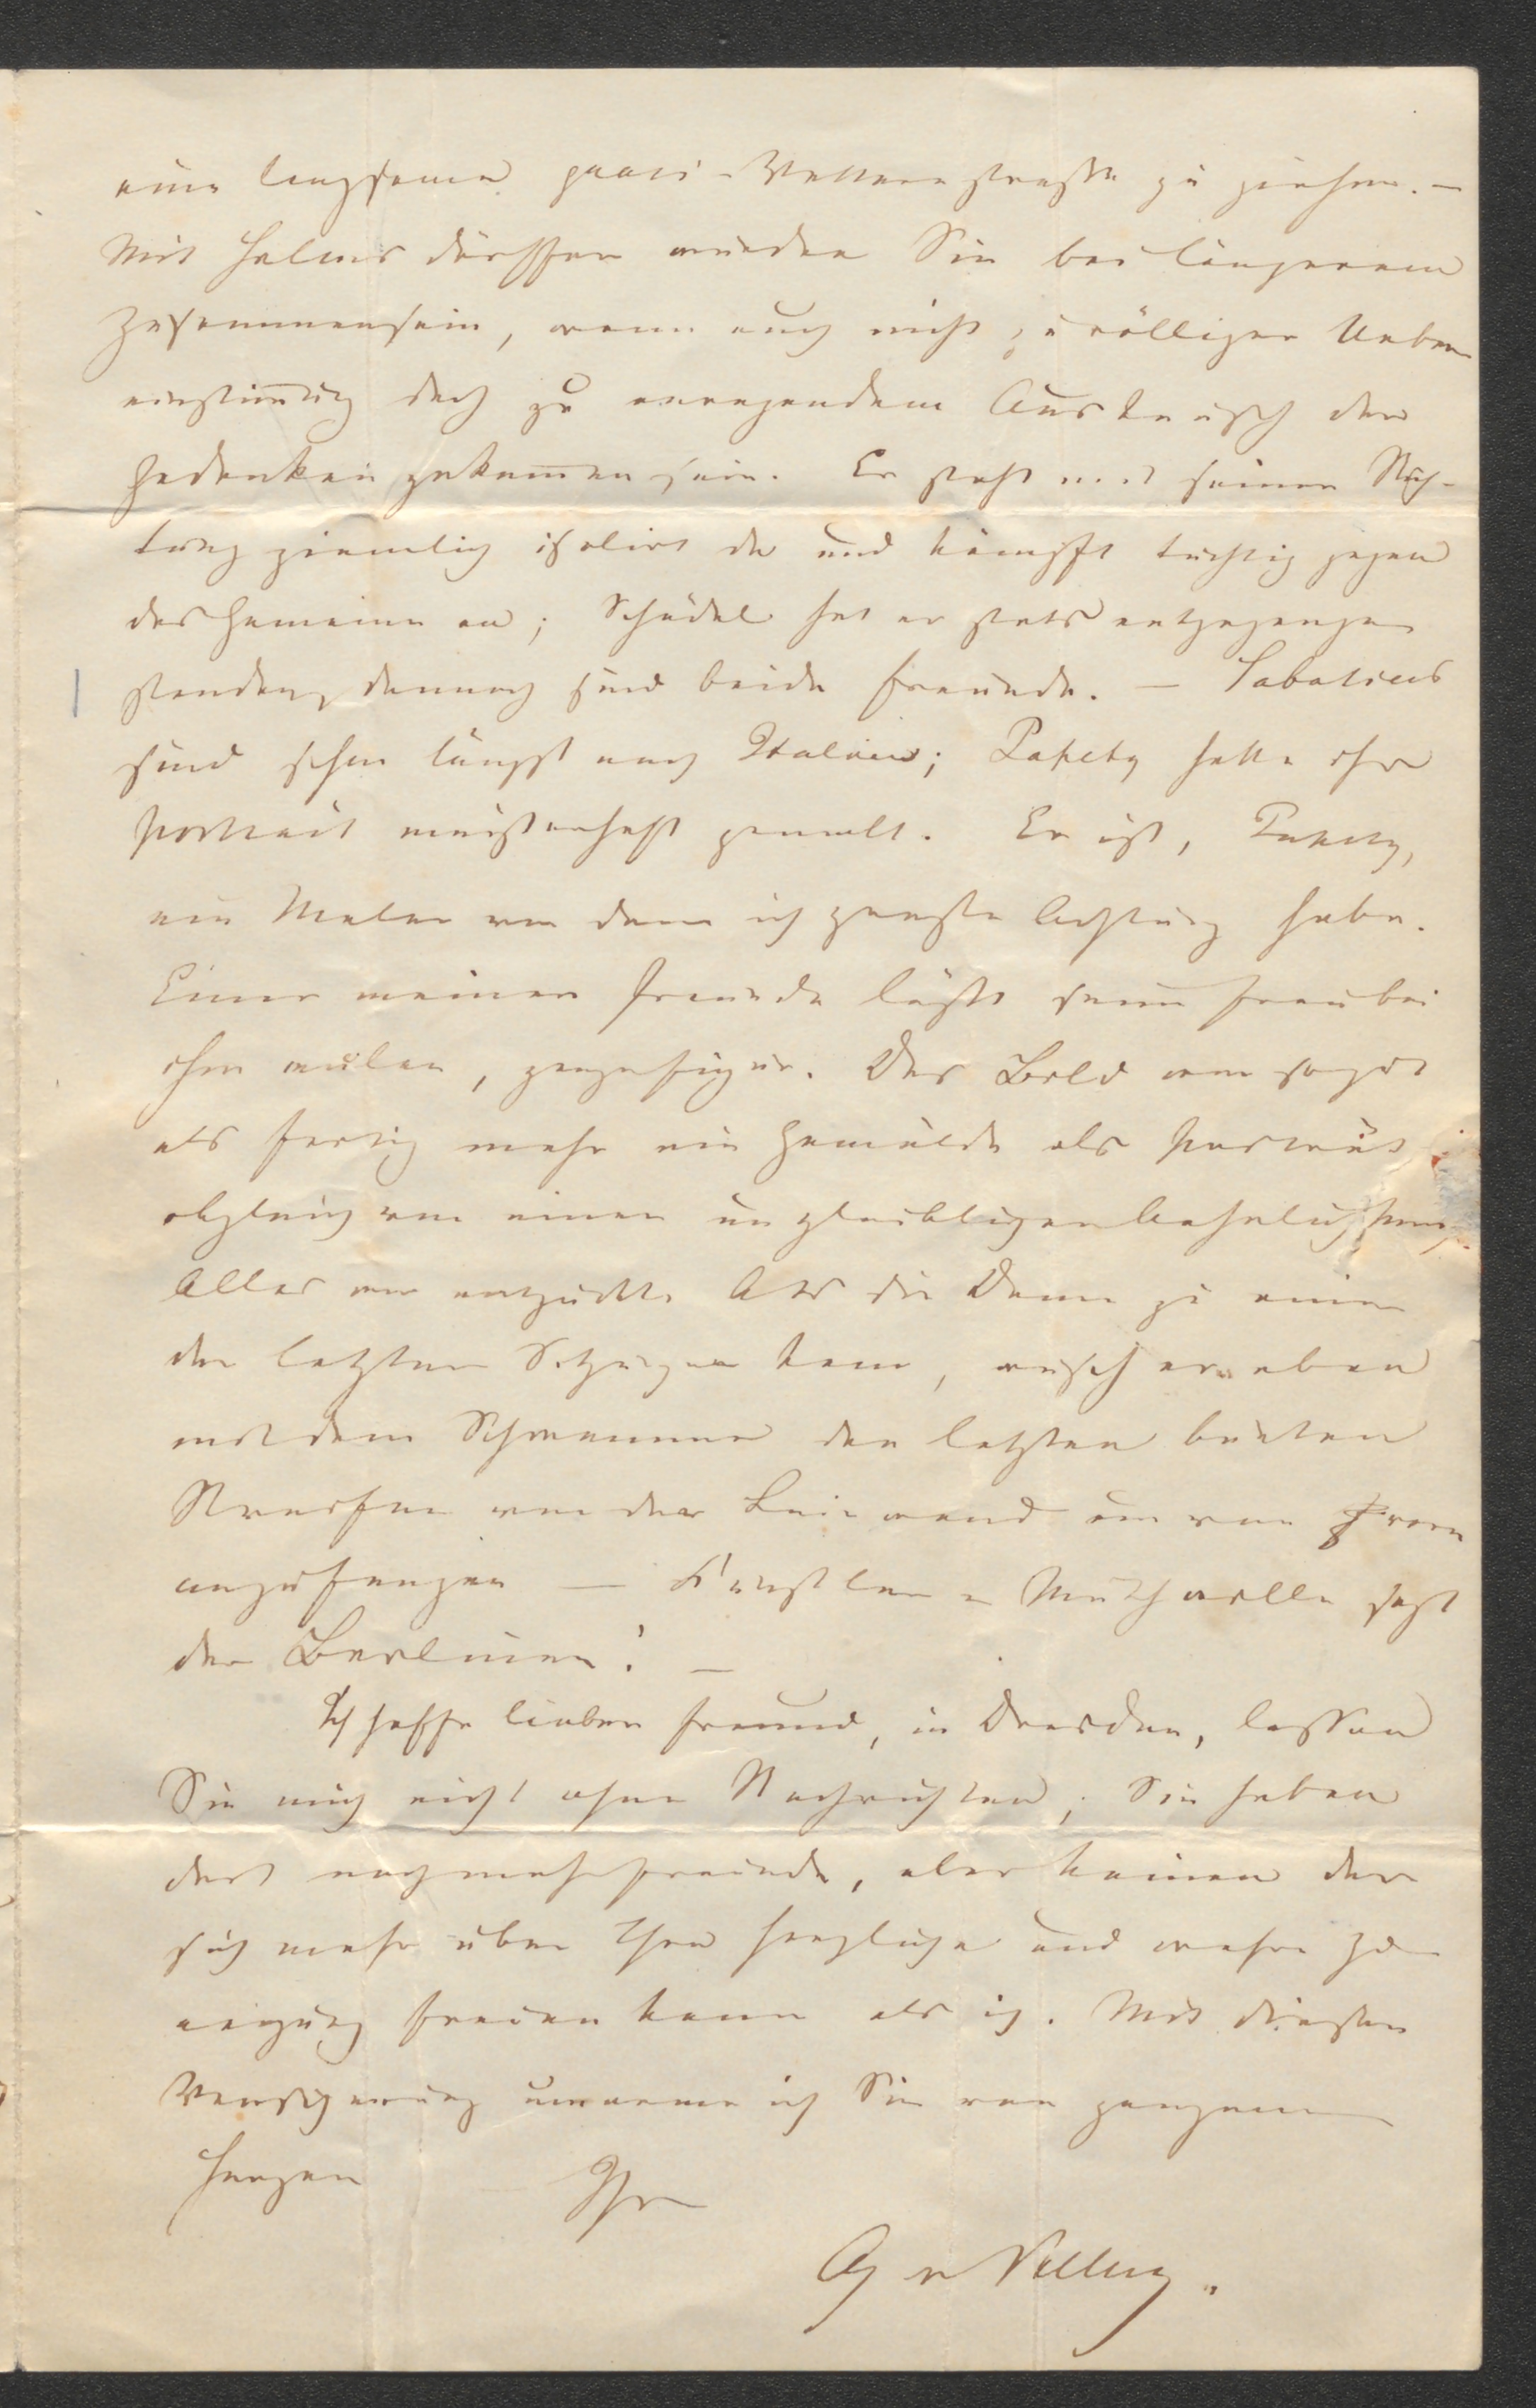 eine langsame quasi-Vetternstraße zu ziehen. —
Mit Helmsdörffer würden Sie bei längerem
Zusammensein, wenn auch nicht zu völliger Ueber
einstimūg doch zu anregendem Austausch der
Gedanken gekom̄en sein. Er steht mit seiner Rich-
tung ziemlich isolirt da und kämpft tüchtig gegen
das Gemeine an; Schädel hat er stets entgegenge
standen, dennoch sind beide Freunde. — Sabatiers
sind schon längst nach Italien; Papety hatte ihr
Portrait meisterhaft gemalt. Er ist, Papety,
ein Maler von dem ich große Achtung habe.
Einer meiner Freunde läßt seine Frau bei
ihm malen, ganze Figur. Das Bild war so gut
als fertig mehr ein Gemälde als Portrait
obgleich von einer unglaublichen Aehnlichkeit,
Alles war entzückt. Als die Dame zu einer
der letzten Sitzungen kam, wusch er eben
mit dem Schwamme den letzten bunten
Streifen von der Leinwand um von vorn
anzufangen — Künstler-Muthwille sagt
der Berliner! —
Ich hoffe lieber Freund, in Dresden, lassen
Sie mich nicht ohne Nachrichten; Sie haben
dort noch mehr Freunde, aber keinen der
sich mehr über Ihre herzliche und wahre Zu
neigung freuen kann als ich. Mit dieser
Versicherung umarme ich Sie von ganzem
Herzen
Ihr